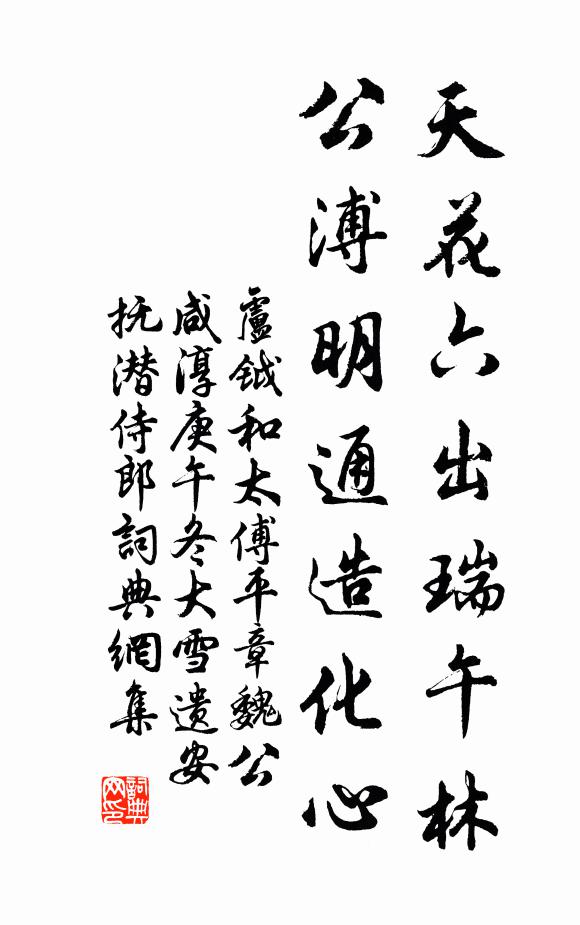 天花六出瑞午林
公溥明通造化心
盧鉞和太傅平章魏公
咸淳庚午冬大雪遺安
抚潜侍郎詞典網集
詞典网印